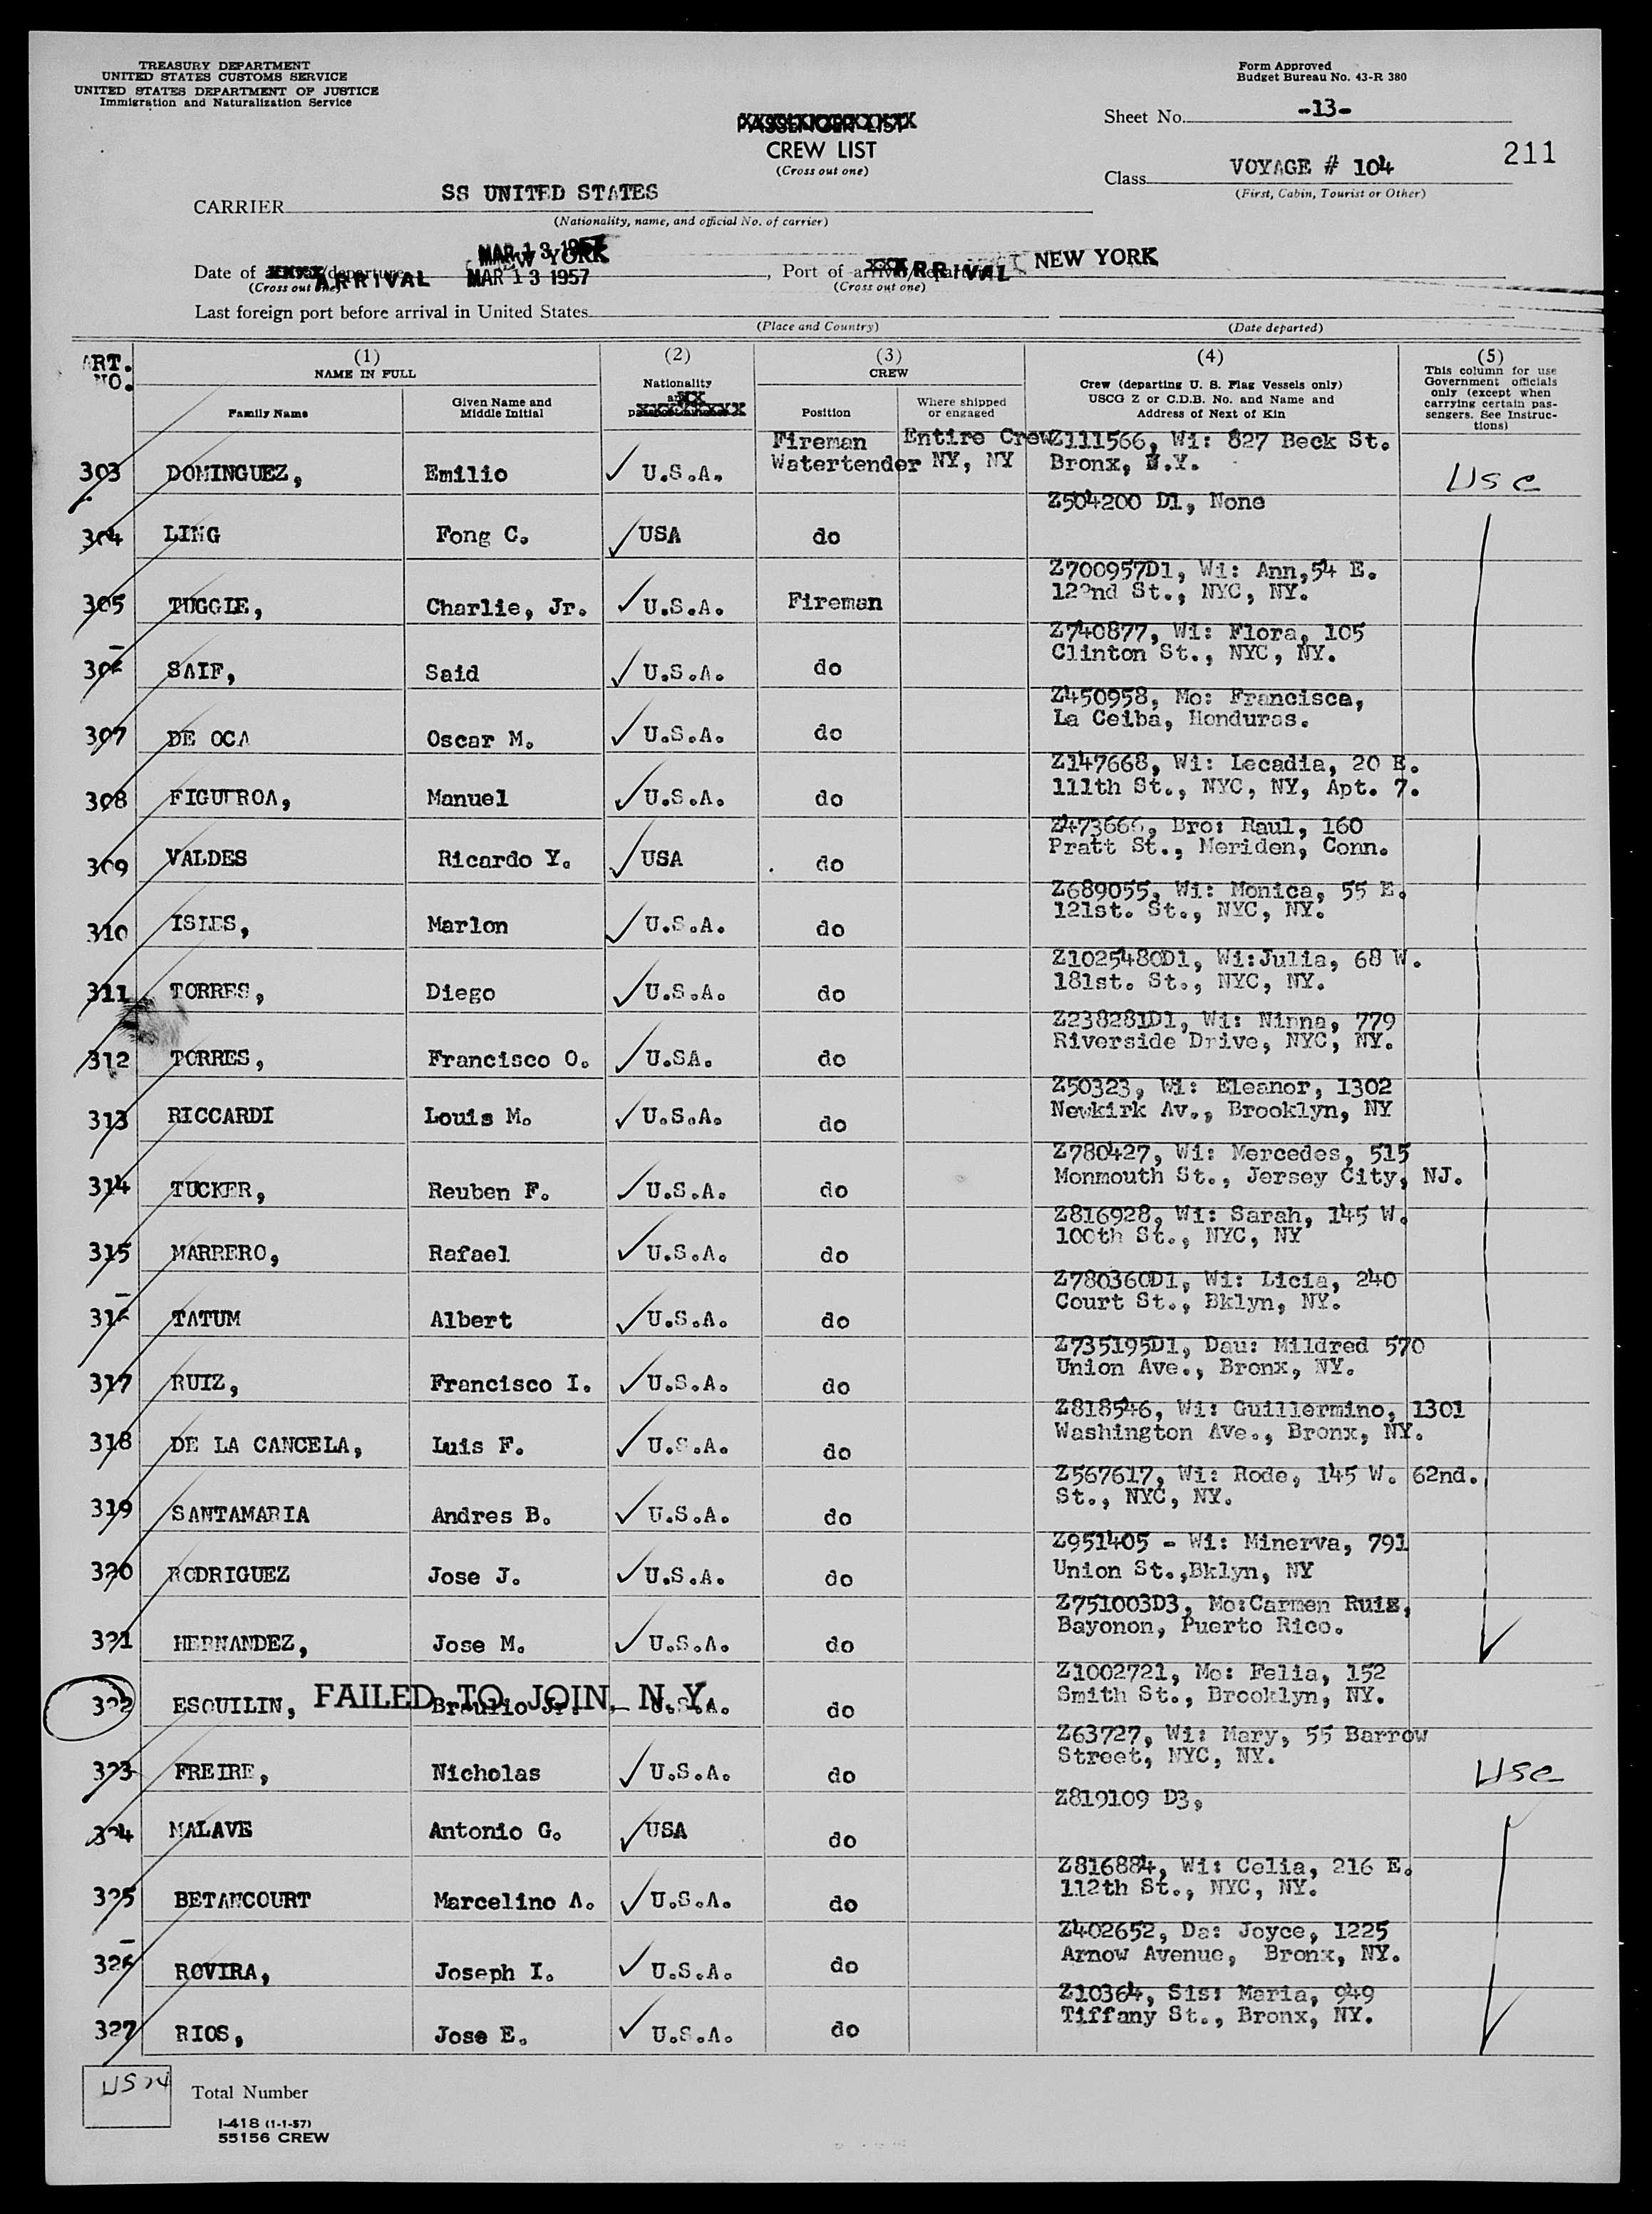 TREASURY DEPARTMENT
UNITED STATES CUSTOMS SERVICE
UNITED STATES DEPARTMENT OF JUSTICE
Immigration and Naturalization Service
Form Approved
Budget Bureau No. 43-R 380
Sheet No. -13-
PASSENGER LIST
CREW LIST
(Cross out one)
211
Class VOYAGE # 104
(First, Cabin, Tourist or Other)
CARRIER SS UNITED STATES
(Nationality, name, and official No. of carrier)
MAR 13 1957
NEW YORK
Date of /departure ARRIVAL MAR 13 1957, Port of arrival/departure ARRIVAL NEW YORK
(Cross out one) (Cross out one)
Last foreign port before arrival in United States
(Place and Country) (Date departed)
ART. NO. (1) NAME IN FULL (2) Nationality (3) CREW (4) (5)
Family Name Given Name and Middle Initial Position Where shipped or engaged
Crew (departing U. S. Flag Vessels only)
USCG Z or C.D.B. No. and Name and
Address of Next of Kin
This column for use
Government officials
only (except when
carrying certain pas-
sengers. See Instruc-
tions)
Fireman Entire Crew Z111566, Wi: 827 Beck St.
303 DOMINGUEZ, Emilio U.S.A. Watertender NY, NY Bronx, N.Y. USC
Z504200 D1, None
304 LING Fong C. USA do
Z700957D1, Wi: Ann,54 E.
305 TUGGIE, Charlie, Jr. U.S.A. Fireman 122nd St., NYC, NY.
Z740877, Wi: Flora, 105
306 SAIF, Said U.S.A. do Clinton St., NYC, NY.
Z450958, Mo: Francisca,
307 DE OCA Oscar M. U.S.A. do La Ceiba, Honduras.
Z147668, Wi: Lecadia, 20 E.
308 FIGUEROA, Manuel U.S.A. do 111th St., NYC, NY, Apt. 7.
Z473666, Bro: Raul, 160
309 VALDES Ricardo Y. USA do Pratt St., Meriden, Conn.
Z689055, Wi: Monica, 55 E.
310 ISLES, Marlon U.S.A. do 121st. St., NYC, NY.
Z1025480D1, Wi:Julia, 68 W.
311 TORRES, Diego U.S.A. do 181st. St., NYC, NY.
Z238281D1, Wi: Ninna, 779
312 TORRES, Francisco O. U.SA. do Riverside Drive, NYC, NY.
Z50323, Wi: Eleanor, 1302
313 RICCARDI Louis M. U.S.A. do Newkirk Av., Brooklyn, NY
Z780427, Wi: Mercedes, 515
314 TUCKER, Reuben F. U.S.A. do Monmouth St., Jersey City, NJ.
Z816928, Wi: Sarah, 145 W.
315 MARRERO, Rafael U.S.A. do 100th St., NYC, NY
Z780360D1, Wi: Licia, 240
316 TATUM Albert U.S.A. do Court St., Bklyn, NY.
Z735195D1, Dau: Mildred 570
317 RUIZ, Francisco I. U.S.A. do Union Ave., Bronx, NY.
Z818546, Wi: Guillermino, 1301
318 DE LA CANCELA, Luis F. U.S.A. do Washington Ave., Bronx, NY.
Z567617, Wi: Rode, 145 W. 62nd.
319 SANTAMARIA Andres B. U.S.A. do St., NYC, NY.
Z951405 - Wi: Minerva, 791
320 RODRIGUEZ Jose J. U.S.A. do Union St.,Bklyn, NY
Z751003D3, Mo:Carmen Ruiz,
321 HERNANDEZ, Jose M. U.S.A. do Bayonon, Puerto Rico.
Z1002721, Mo: Felia, 152
322 ESQUILIN, FAILED TO JOIN, N.Y. Braulio Jr. U.S.A. do Smith St., Brooklyn, NY.
Z63727, Wi: Mary, 55 Barrow
323 FREIRE, Nicholas U.S.A. do Street, NYC, NY. USC
Z819109 D3,
324 MALAVE Antonio G. USA do
Z816884, Wi: Celia, 216 E.
325 BETANCOURT Marcelino A. U.S.A. do 112th St., NYC, NY.
Z402652, Da: Joyce, 1225
326 ROVIRA, Joseph I. U.S.A. do Arnow Avenue, Bronx, NY.
Z10364, Sis: Maria, 949
327 RIOS, Jose E. U.S.A. do Tiffany St., Bronx, NY.
US 24 Total Number
I-418 (1-1-57)
55156 CREW